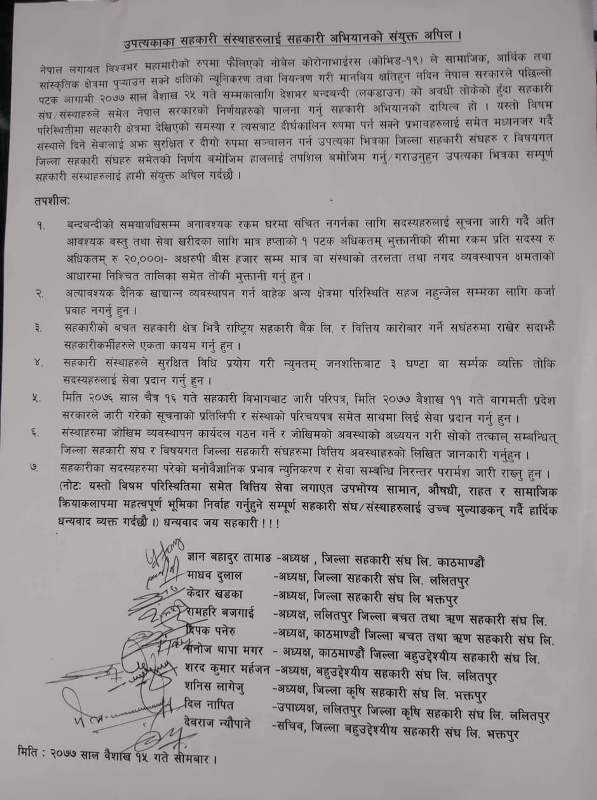 उपत्यकाका सहकारी संस्थाहरुलाई सहकारी अभियानको संयुक्त अपिल ।
नेपाल लगायत विश्वभर महामारीको रुपमा फैलिएको नोबेल कोरोनाभाईरस (कोभिड-१९) ले सामाजिक, आर्थिक तथा
सांस्कृतिक क्षेत्रमा पुऱ्याउन सक्ने क्षतिको न्यूनिकरण तथा नियन्त्रण गरी मानविय क्षतिहुन नदिन नेपाल सरकारले पछिल्लो
पटक आगामी २०७७ साल बैशाख २५ गते सम्मकालागि देशभर बन्दबन्दी (लकडाउन) को अवधी तोकेको हुँदा सहकारी
संघ/संस्थाहरुले समेत नेपाल सरकारको निर्णयहरुको पालना गर्नु सहकारी अभियानको दायित्व हो । यस्तो बिषम
परिस्थितीमा सहकारी क्षेत्रमा देखिएको समस्या र त्यसबाट दीर्घकालिन रुपमा पर्न सक्ने प्रभावहरुलाई समेत मध्यनजर गर्दै
संस्थाले दिने सेवालाई अझ सुरक्षित र दीगो रुपमा सञ्चालन गर्न उपत्यका भित्रका जिल्ला सहकारी संघहरु र बिषयगत
जिल्ला सहकारी संघहरु समेतको निर्णय बमोजिम हाललाई तपशिल बमोजिम गर्नु/गराउनुहुन उपत्यका भित्रका सम्पूर्ण
सहकारी संस्थाहरुलाई हामी संयुक्त अपिल गर्दछौ ।
तपशील:
१. बन्दबन्दीको समयावधिसम्म अनावश्यक रकम घरमा संचित नगर्नका लागि सदस्यहरुलाई सूचना जारी गर्दै अति
आवश्यक वस्तु तथा सेवा खरीदका लागि मात्र हप्ताको १ पटक अधिकतम् भुक्तानीको सीमा रकम प्रति सदस्य रु
अधिकतम् रु २०,०००।- अक्षरुपी बीस हजार सम्म मात्र वा संस्थाको तरलता तथा नगद व्यवस्थापन क्षमताको
आधारमा निश्चित तालिका समेत तोकी भुक्तानी गर्नु हुन ।
२. अत्यावश्यक दैनिक खाद्यान्न व्यवस्थापन गर्न बाहेक अन्य क्षेत्रमा परिस्थिति सहज नहुन्जेल सम्मका लागि कर्जा
प्रवाह नगर्नु हुन ।
३. सहकारीको बचत सहकारी क्षेत्र भित्रै राष्ट्रिय सहकारी बैंक लि. र वित्तिय कारोबार गर्ने सघंहरुमा राखेर सदाझैं
सहकारीकर्मीहरुले एकता कायम गर्नु हुन ।
४. सहकारी संस्थाहरुले सुरक्षित विधि प्रयोग गरी न्युनतम् जनशक्तिबाट ३ घण्टा वा सर्म्पक व्यक्ति तोकि
सदस्यहरुलाई सेवा प्रदान गर्नु हुन ।
५. मिति २०७६ साल चैत्र १६ गते सहकारी विभागबाट जारी परिपत्र, मिति २०७७ बैशाख ११ गते वागमती प्रदेश
सरकारले जारी गरेको सूचनाको प्रतिलिपी र संस्थाको परिचयपत्र समेत साथमा लिई सेवा प्रदान गर्नु हुन ।
६. संस्थाहरुमा जोखिम व्यवस्थापन कार्यदल गठन गर्ने र जोखिमको अवस्थाको अध्ययन गरी सोको तत्काल् सम्बन्धित्
जिल्ला सहकारी संघ र विषयगत जिल्ला सहकारी संघहरुमा वित्तिय अवस्थाहरुको लिखित जानकारी गर्नुहुन ।
७. सहकारीका सदस्यहरुमा परेको मनोबैज्ञानिक प्रभाव न्युनिकरण र सेवा सम्बन्धि निरन्तर परार्मश जारी राख्नु हुन ।
(नोट: यस्तो विषम परिस्थितिमा समेत वित्तिय सेवा लगाएत उपभोग्य सामान, औषधी, राहत र सामाजिक
क्रियाकलापमा महत्वपूर्ण भूमिका निर्वाह गर्नुहुने सम्पूर्ण सहकारी संघ/संस्थाहरुलाई उच्च मुल्याङकन् गर्दै हार्दिक
धन्यवाद व्यक्त गर्दछौ ।) धन्यवाद जय सहकारी !!!
ज्ञान बहादुर तामाङ -अध्यक्ष , जिल्ला सहकारी संघ लि. काठमाण्डौं
माधव दुलाल -अध्यक्ष, जिल्ला सहकारी संघ लि. ललितपुर
केदार खडका -अध्यक्ष, जिल्ला सहकारी संघ लि भक्तपुर
रामहरि बजगाई -अध्यक्ष, ललितपुर जिल्ला बचत तथा ऋण सहकारी संघ लि.
दिपक पनेरु -अध्यक्ष, काठमाण्डौं जिल्ला बचत तथा ऋण सहकारी संघ लि.
मनोज थापा मगर - अध्यक्ष, काठमाण्डौं जिल्ला बहुउद्देश्यीय सहकारी संघ लि.
शरद कुमार महंजन -अध्यक्ष, बहुउद्देश्यीय सहकारी संघ लि. ललितपुर
शनिस लागेजु -अध्यक्ष, जिल्ला कृषि सहकारी संघ लि. भक्तपुर
दिल नापित -उपाध्यक्ष, ललितपुर जिल्ला कृषि सहकारी संघ लि. ललितपुर
देवराज न्यौपाने -सचिव, जिल्ला बहुउद्देश्यीय सहकारी संघ लि. भक्तपुर
मिति : २०७७ साल बैशाख १५ गते सोमबार ।